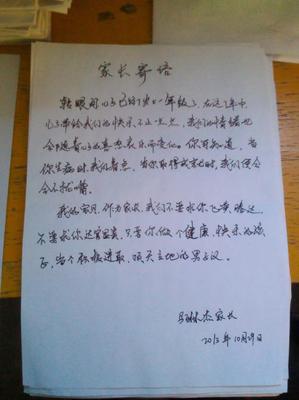 家长寄语
转眼间儿子已经7岁上一年级了,在这7年中
儿子带给我们的快乐不止一点,我们的情绪也
会随着你的喜怒哀乐而变化。你可知道,当
你生病时,我们着急,当你取得成绩时,我们便会
我的宝贝,作为家长,我们不要求你飞黄腾达,
不要求你达官显贵,只要你做个健康,快乐的孩
子,当个积极进取,顶天立地的男子汉。
家长
2013年10月29日